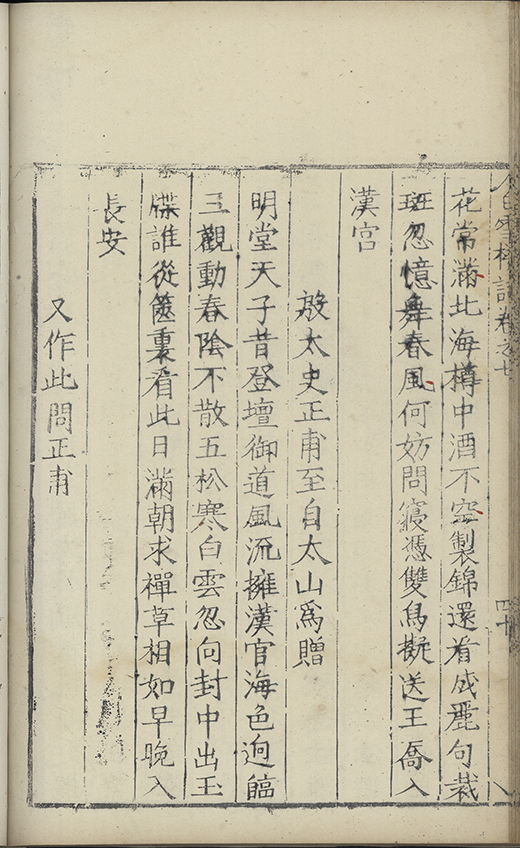 白雪樓詩卷之七
花常滿北海樽中酒不空製錦還看成麗句裁
斑忽憶舞春風何妨問寢憑雙舃擬送王喬入
漢宮
放太史正甫至自太山爲贈
明堂天子昔登壇御道風流擁漢官海色逈臨
三觀動春陰不散五松寒白雲忽向封中出玉
牒誰從篋裏看此日滿朝求禪草相如早晚入
長安
又作此問正甫